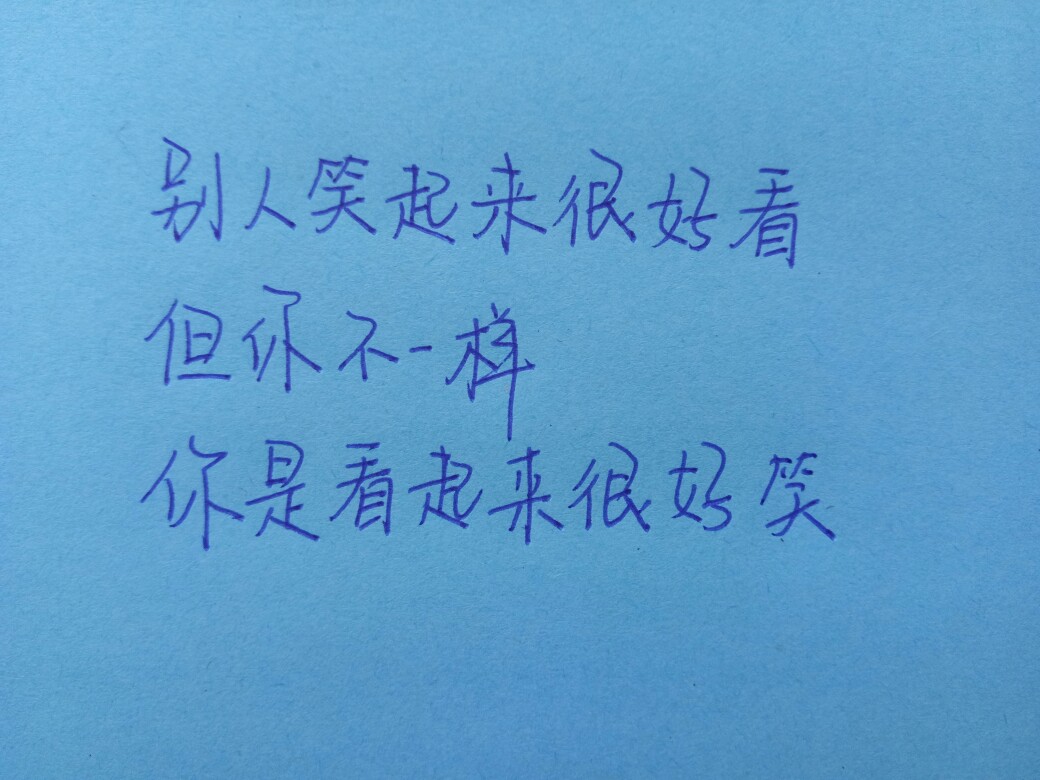 别人笑起来很好看
但你不一样
你是看起来很好笑